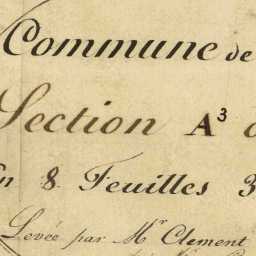 Commune de
Section A³
En 8 Feuilles 3
Levée par Mr Clement